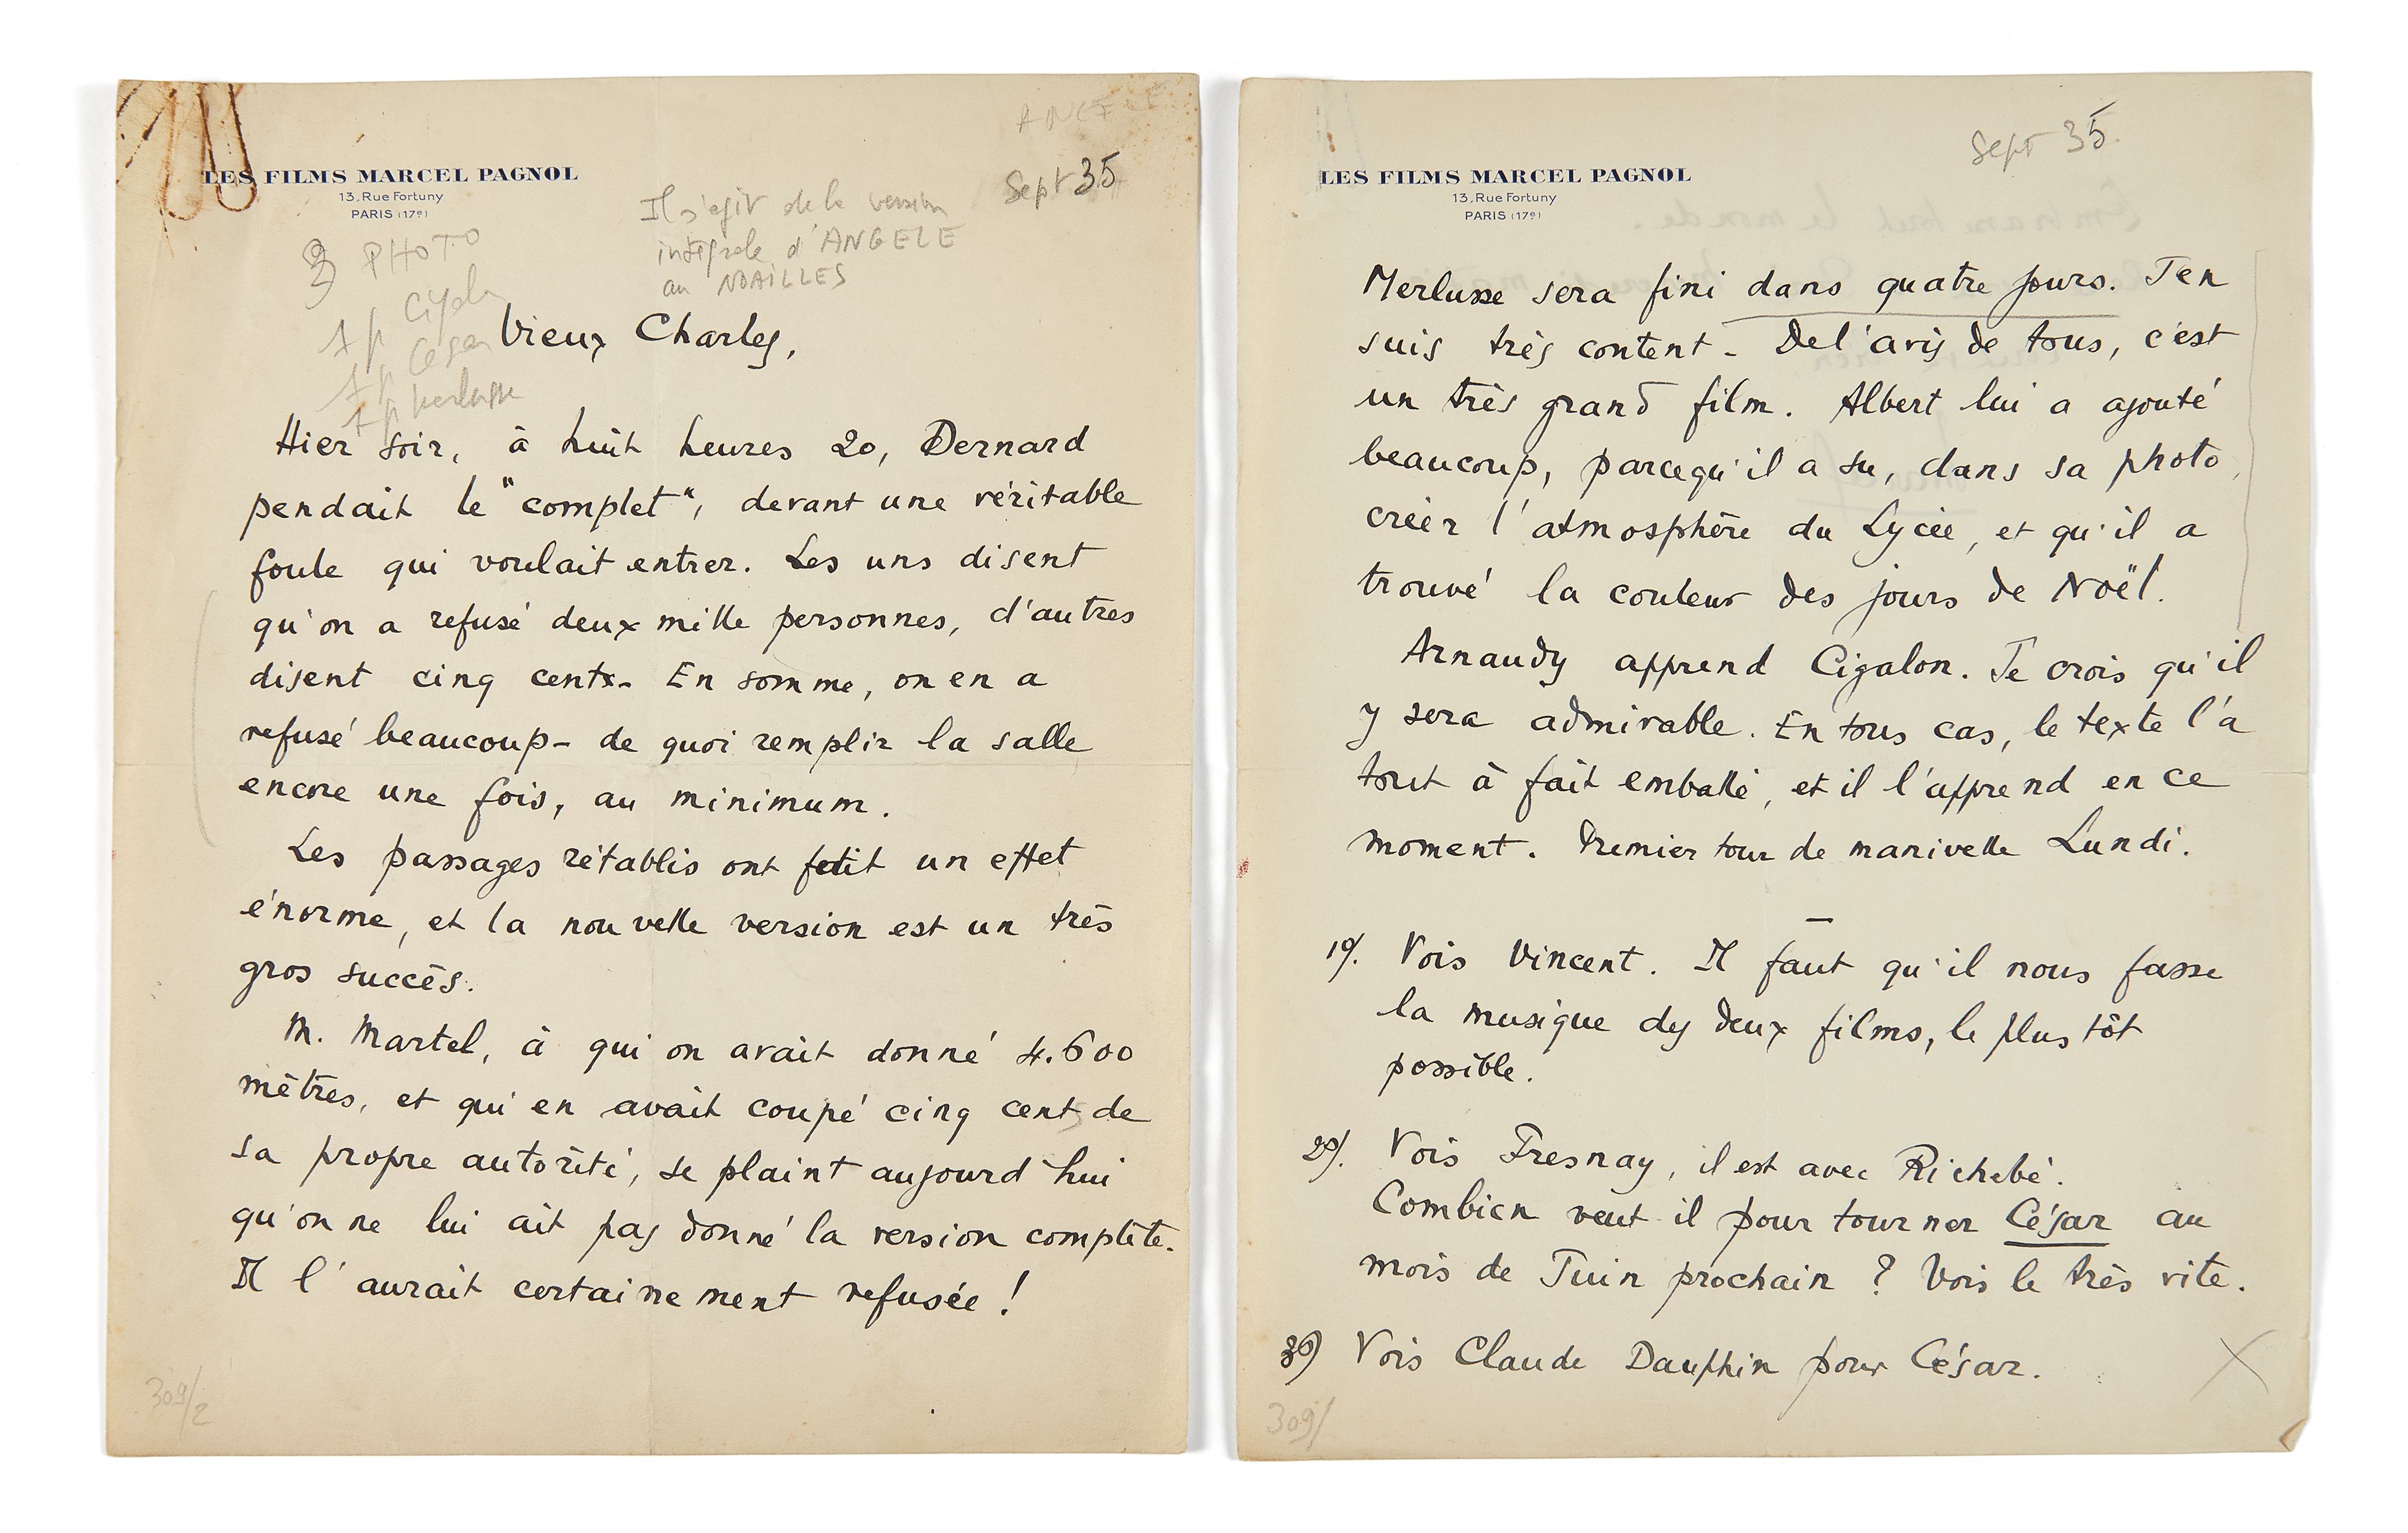 ANGELE
Sept 35
LES FILMS MARCEL PAGNOL
13, Rue Fortuny
PARIS (17e)
Il s'agit de la version
intégrale d'ANGELE
au NOAILLES
3 PHOTO
1 p Cigalon
1 p César
1 p Merlusse
Vieux Charles,
Hier soir, à huit heures 20, Bernard
pendait le "complet", devant une véritable
foule qui voulait entrer. Les uns disent
qu'on a refusé deux mille personnes, d'autres
disent cinq cents. En somme, on en a
refusé beaucoup - de quoi remplir la salle
encore une fois, au minimum.
Les passages rétablis ont fait un effet
énorme, et la nouvelle version est un très
gros succès.
M. Martel, à qui on avait donné 4.600
mètres, et qui en avait coupé cinq cents de
sa propre autorité, se plaint aujourd'hui
qu'on ne lui ait pas donné la version complète.
Il l'aurait certainement refusée !
309/2
Sept 35.
LES FILMS MARCEL PAGNOL
13, Rue Fortuny
PARIS (17e)
Merlusse sera fini dans quatre jours. J'en
suis très content - De l'avis de tous, c'est
un très grand film. Albert lui a ajouté
beaucoup, parcequ'il a su, dans sa photo,
créer l'atmosphère du Lycée, et qu'il a
trouvé la couleur des jours de Noël.
Arnaudy apprend Cigalon. Je crois qu'il
y sera admirable. En tous cas, le texte l'a
tout à fait emballé, et il l'apprend en ce
moment. Premier tour de manivelle Lundi.
—
1°/. Vois Vincent. Il faut qu'il nous fasse
la musique des deux films, le plus tôt
possible.
2°/. Vois Fresnay, il est avec Richebé.
Combien veut-il pour tourner César au
mois de Juin prochain ? Vois le très vite.
3°) Vois Claude Dauphin pour César.
309/